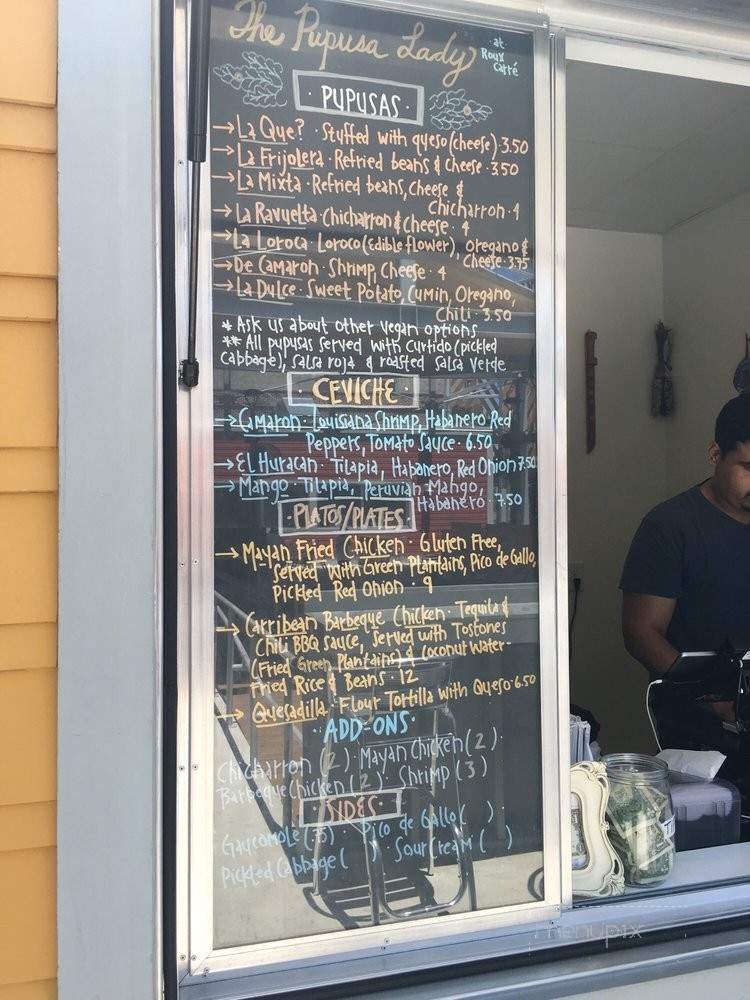 The Pupusa Lady
at
Roux
Carré
PUPUSAS
→La Que? · Stuffed with queso (cheese) · 3.50
→La Frijolera · Refried beans & Cheese · 3.50
→La Mixta · Refried beans, cheese &
Chicharron · 4
→La Ravuelta · Chicharron & Cheese · 4
→La Loroca · Loroco (Edible flower), oregano &
Cheese · 3.75
→De Camaron · Shrimp, Cheese · 4
→La Dulce · Sweet Potato, Cumin, Oregano,
Chili · 3.50
* Ask us about other vegan options
** All pupusas served with Curtido (pickled
cabbage), salsa roja & roasted salsa verde
·CEVICHE·
→Camaron · Louisiana Shrimp, Habanero Red
Peppers, Tomato Sauce · 6.50
→El Huracan · Tilapia, Habanero, Red Onion 7.50
→Mango · Tilapia, Peruvian Mango,
Habanero · 7.50
·PLATOS/PLATES·
→Mayan Fried Chicken · Gluten Free,
served with Green Plantains, Pico de Gallo,
Pickled Red Onion · 9
→Carribean Barbeque Chicken · Tequila &
Chili BBQ sauce, served with Tostones
(Fried Green Plantains) & Coconut Water-
Fried Rice & Beans · 12
→Quesadilla · Flour Tortilla with Queso · 6.50
·ADD-ONS·
Chicharron (2) · Mayan Chicken (2) ·
Barbeque Chicken (2) · Shrimp (3)
·SIDES·
Guycomole (.75) · Pico de Gallo ( ) ·
Pickled Cabbage ( ) · Sour Cream ( )
menupix